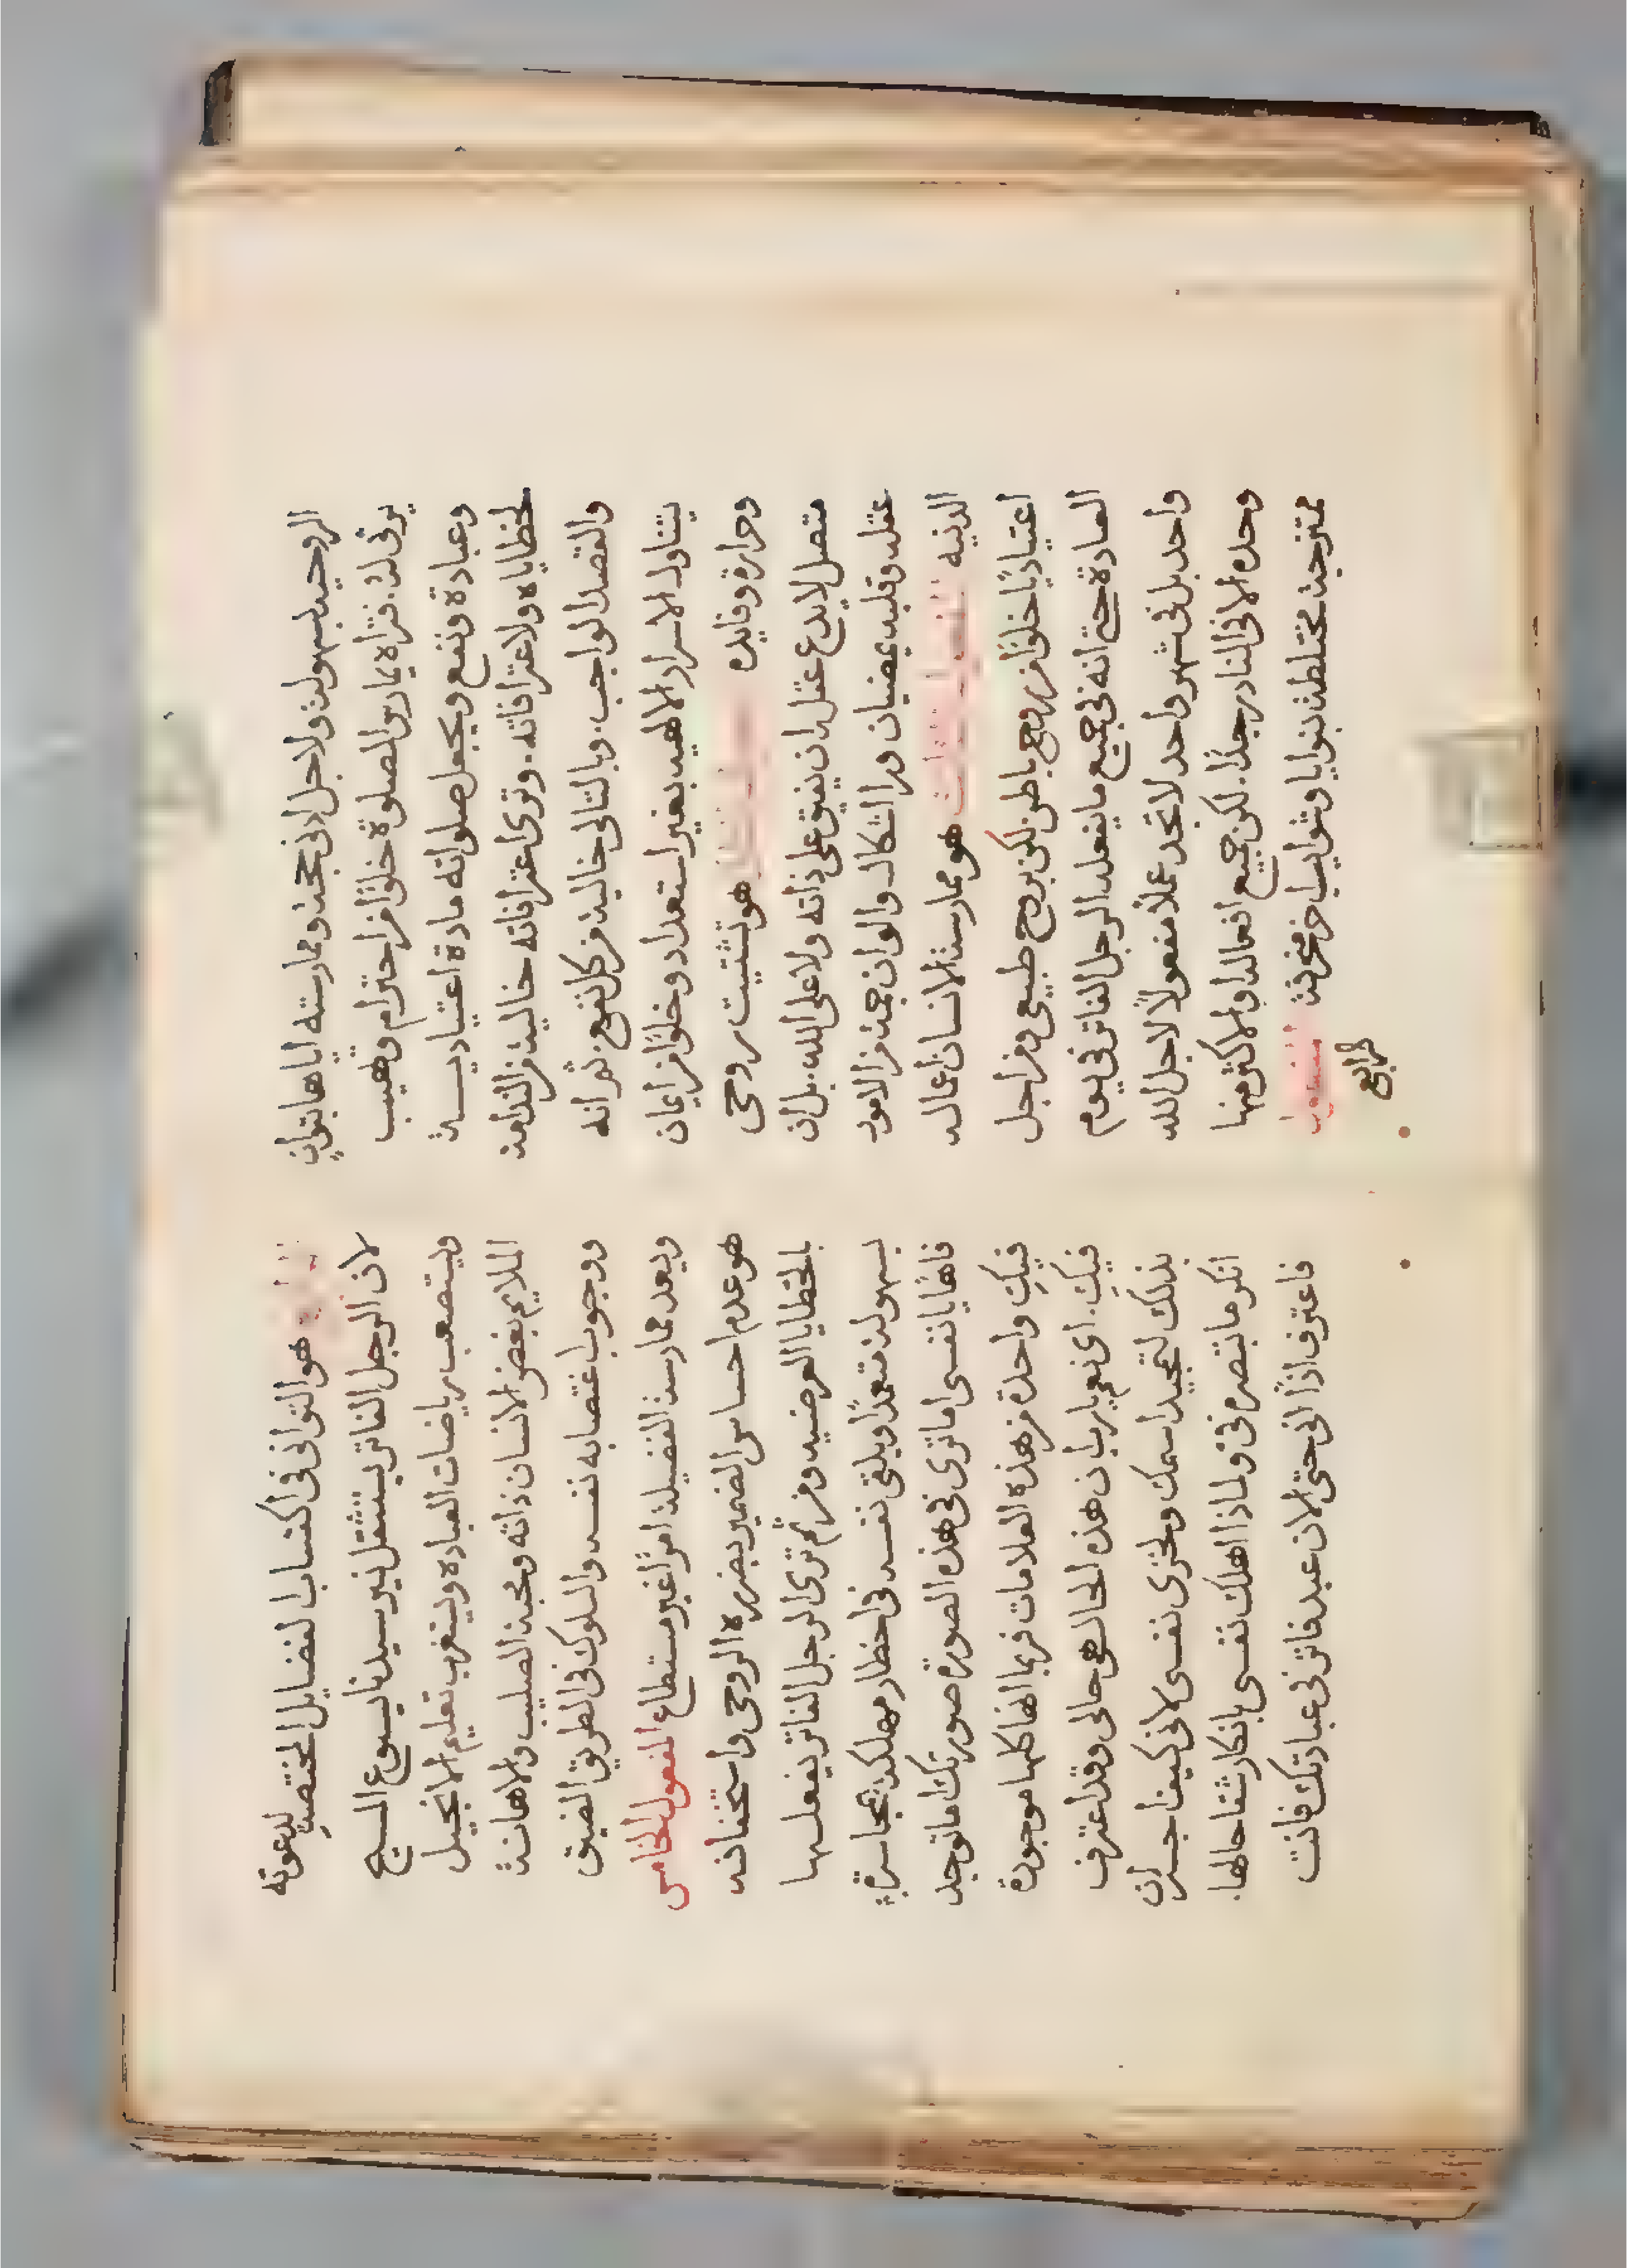 الروحيه بسهوله ولاجل ادنى حجه وممارسته اياها بتوانٍ
يرثى له. فتراه يمارس الصلوة خلوًا من احترام وتهيب
وعبادة ونفع ويجعل صلواته مادة اعتياديـــة
لخطاياه ولاعترافاته. وترى اعترافاته خالية من الندامة
والقصد الواجب. وبالتالى خالية من كل نفع. ثم انه
يتناول الاسرار الالهيه بغير استعداد وخلوًا من ايمان
وحرارة وفايده هو تشتيت روحى
متصل لا يدع عقله ان يفيق على ذاته ولا على الله. بل ان
عقله وقلبه يمضيان ورا اشكال والوان جمة من الامور
الدنيه هو ممارسة الانسان اعماله
اعتياديًا خلوًا من روح باطن لكن بروح طبيعى ومن اجل
العادة حتى انه فى جميع ما يفعله الرجل الفاتر فى يوم
واحد بل فى شهر واحد لا تجد عملاً مفعولاً لاجل الله
وحده الا فى النادر جدًا. لكن جميع افعاله او الاكثر منها
ممتزجة مختلطة بنوايا وشوايب اخر منحرفة المفعول
الرابع
هو التوانى فى اكتساب الفضايل المختصه لدعوته
لان الرجل الفاتر يستثقل نير سيدنا يسوع المسيح
ويستصعب رياضات العباده ويستغرب تعليم الانجيل
الملايم بغض الانسان ذاته ومحبة الصليب والاهانة
ووجوب اغتصابه نفسه والسلوك فى الطريق الضيق
ويعد ممارسة الفضيلة امرًا غير مستطاع المفعول الخامس
هو عدم احساس الضمير بضرره الروحى واستخفافه
بالخطايا العرضيه ومن ثم ترى الرجل الفاتر يفعلـــها
بسهولة متعمدًا ويلقى نفسه فى اخطار مهلكه بجاسرة
فاهًا يا نفسى اما ترى فى هذه الصورة صورتك اما توجد
فيكِ واحدة من هذه العلامات فربما انها كلها موجودة
فيكِ. اى نعم يارب ان هذه الحال هى حالى وقد اعترف
بذلك لتمجيد اسمك ولخزى نفسى لانى كيف اجسر ان
انكر ما تبصره فى ولماذا اهلك نفسى بانكار شقا حالها.
فاعترف اذًا انى حتى الان عبد فاتر فى عبادتك فانت